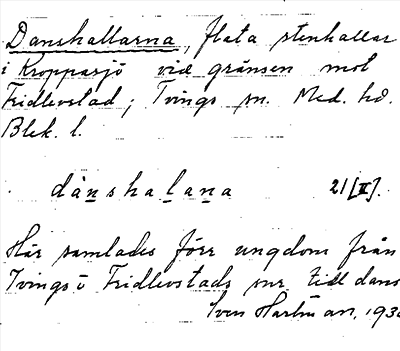 Danshallarna, flata stenhallar
i Kroppasjö vid gränsen mot
Fridlevstad; Tvings sn. Med. hd.
Blek. l.
dànshalana 21[II].
Här samlades förr ungdom från
Tvings o Fridlevstads snr till dans
Sven Hartman, 193